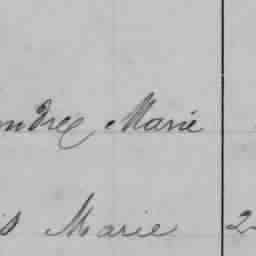 andre Marie
is Marie 2